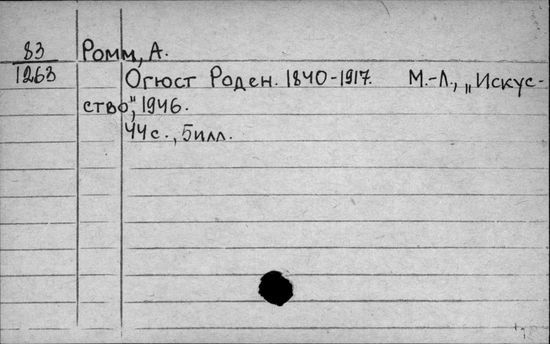 83 Ромм, А.
1263 Огюст Роден. 1840-1917. М.-Л., „Искус-
ство", 1946.
44 с., 5 илл.